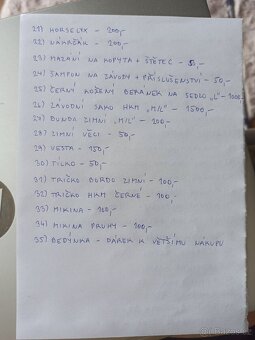 21) HORSELYX - 200,-
22) NÁKRČÁK - 200,-
23) MAZÁNÍ NA KOPYTA + ŠTĚTEC - 50,-
24) ŠAMPON NA ZÁVODY + PŘÍSLUŠENSTVÍ - 50,-
25) ČERNÝ KOŽENÍ BERANEK NA SEDLO "L" - 1000,-
26) ZÁVODNÍ SAKO HKM "M/L" - 1500,-
27) BUNDA ZIMNÍ "M/L" - 200,-
28) ZIMNÍ VĚCI - 50,-
29) VESTA - 150,-
30) TÍLKO - 50,-
31) TRIČKO BORDO ZIMNÍ - 100,-
32) TRIČKO HKM ČERNÉ - 100,-
33) MIKINA - 100,-
34) MIKINA PRUHY - 100,-
35) BEDÝNKA - DÁREK K VĚTŠÍMU NÁKUPU